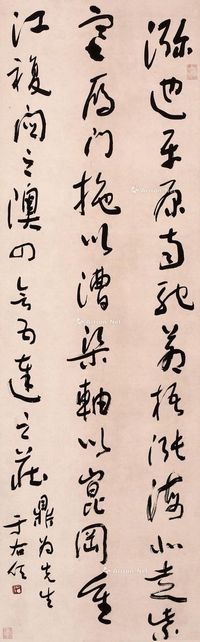 瀰迆平原南馳蒼梧漲海北走紫
塞雁門拖以漕渠軸以崑岡重
江複關之隩四會五達之莊
鼎為先生
于右任